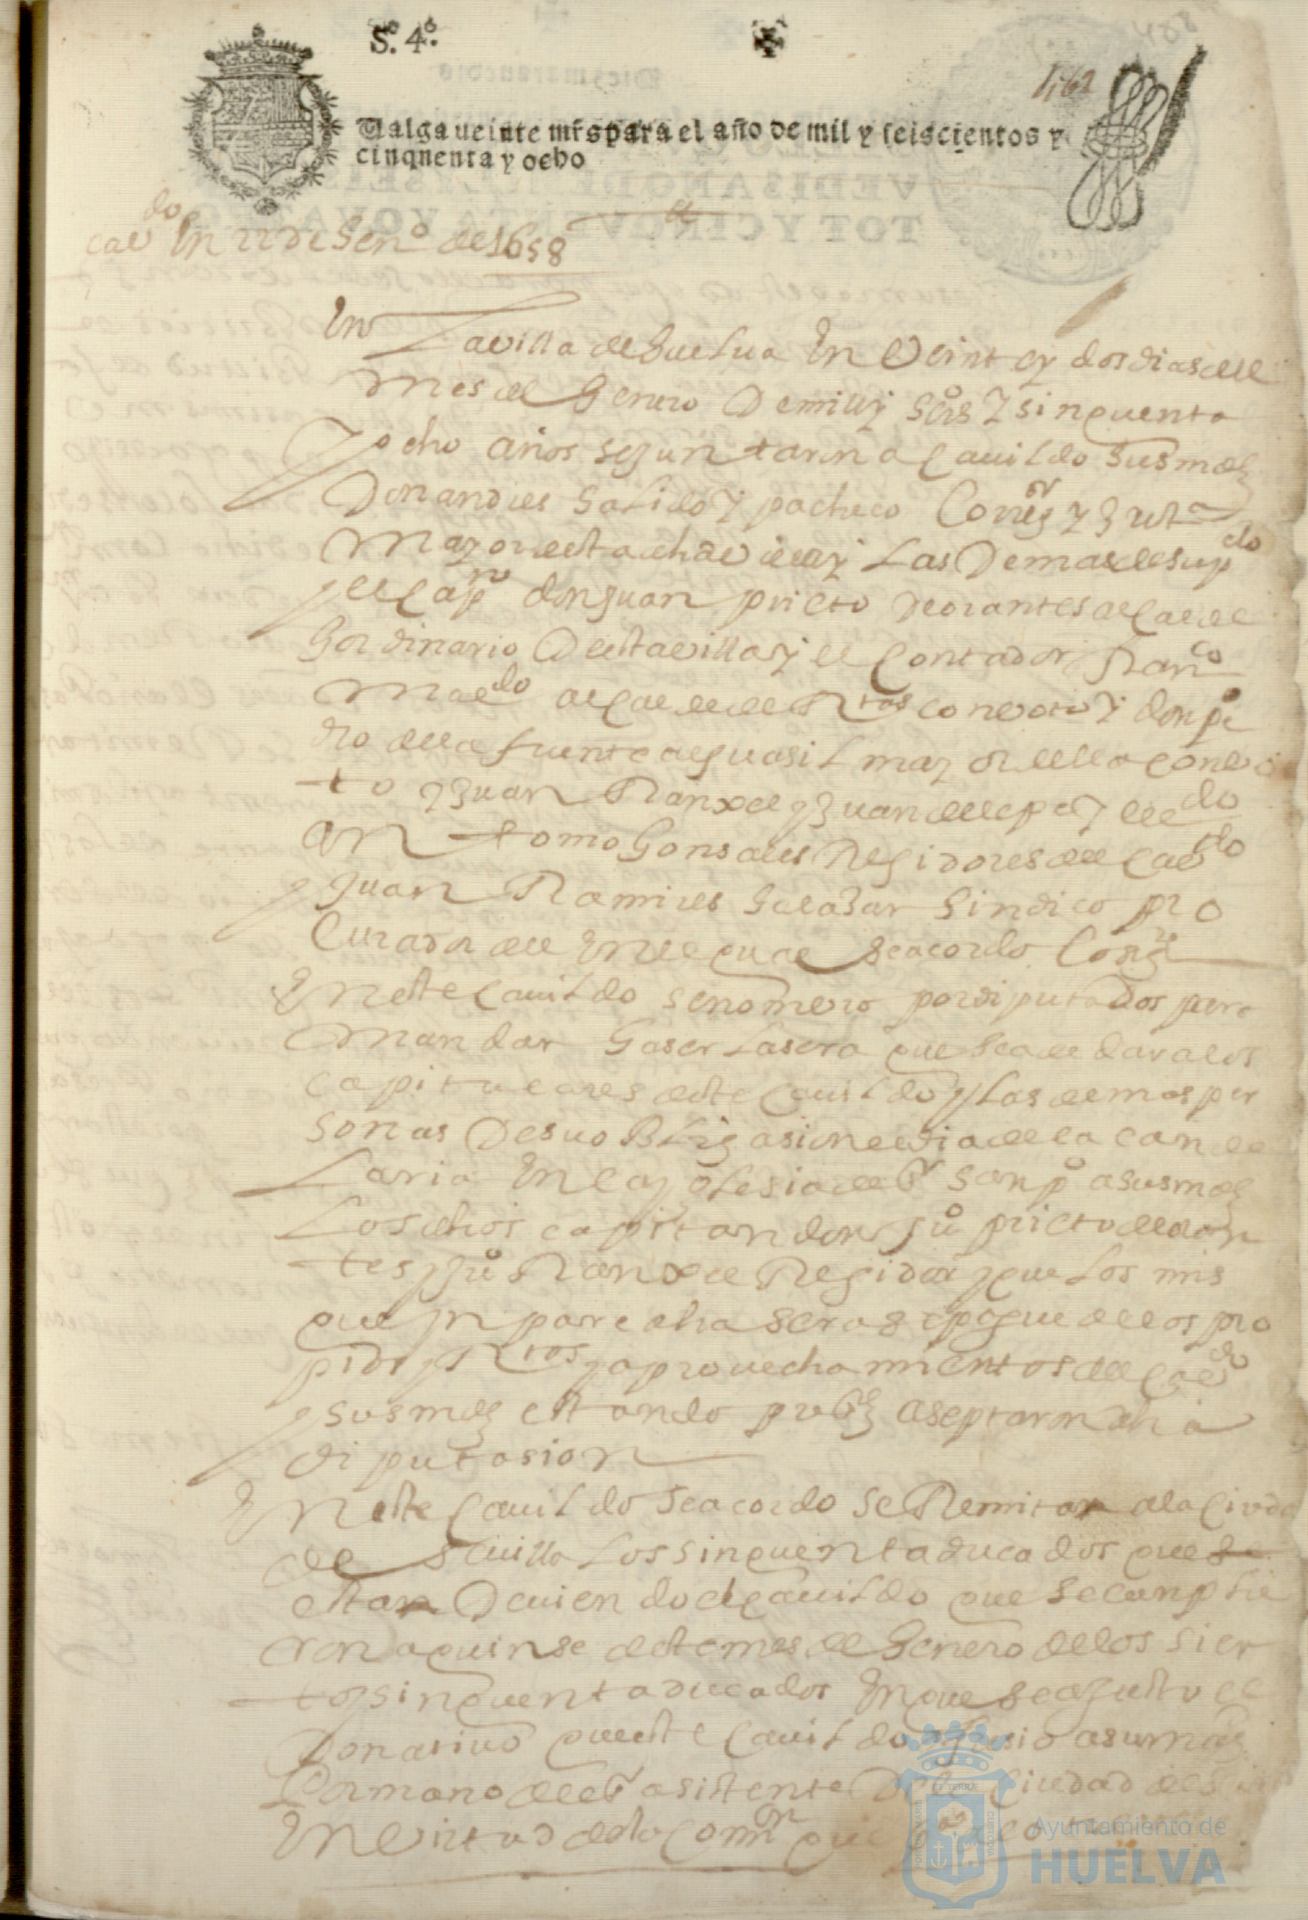 Sº. 4º.
1,62
Valga veinte mrs para el año de mil y seiscientos y
cinqnenta y ocho
cavdo En 22 de Henº de 1658
En La villa de huelua En Veint y dos dias del
mes de henero De mill y sºis y sinquenta
y ocho años se juntaron a cauildo sus mds
Don andres salido y pacheco Corregr y Justª
mayor desta dha villa y Las Demas de su pdo
y el capn don juan prieto de orantes alcalde
hordinario Desta villa y el Contador franco
maldo alcalde de Rtas con voto y don pe
dro de la fuente alguasil mayor della con vo
to y Juan Ranxel y Juan de lepe y el ldo
an tomo Gonsales Regidores del cavdo
y Juan Ramires salazar sindico pro
curador del En el qual se acordo lo sigte
En este cauildo se nomvro por diputados para
mandar haser la sera que se a de dar a los
capitulares deste cauildo y las demas per
sonas De su obligasion el dia de la cande
laria En la yglesia del sr san pº a sus mds
Los dhos capitan don juº prieto de oran
tes y juº Ranxel Regidor y que los mrs
que yn portare dha sera se pague de los pro
pios y Rtas y aprovechamientos del cavdo
y sus mds estando pressentes aseptaron dha
diputasion
En este cauildo se acordo se Remitan a la ciuda
de seuilla Los sinquenta ducados que se
estan Deuiendo del cauildo que se cunplie
ron a quinse deste mes de henero de los sien
to y sinquenta ducados En que se ajusto el
Donatiuo que este cauildo ofresio a su magd
Por mano del sr asistente De la ciudad de
En Virtud de la Comn que
Ayuntamiento de
HUELVA